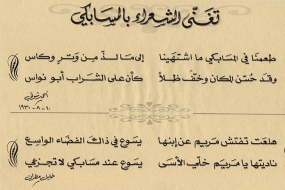 تغنى الشعراء بالمسابكي
طعمنا في المسابكي ما اشتهينا إلى مالذ من وتر وكاس
وقد حسن المكان وخف ظلاً كأن على الشراب أبو نواس
أحمد شوقي
١٠ - ٨ - ١٩٣٠
هلعت تفتش مريم عن إبنها يسوع في ذاك الفضاء الواسع
ناديتها يا مريم خلي الأسى يسوع عند مسابكي لا تجزعي
خليل مطران